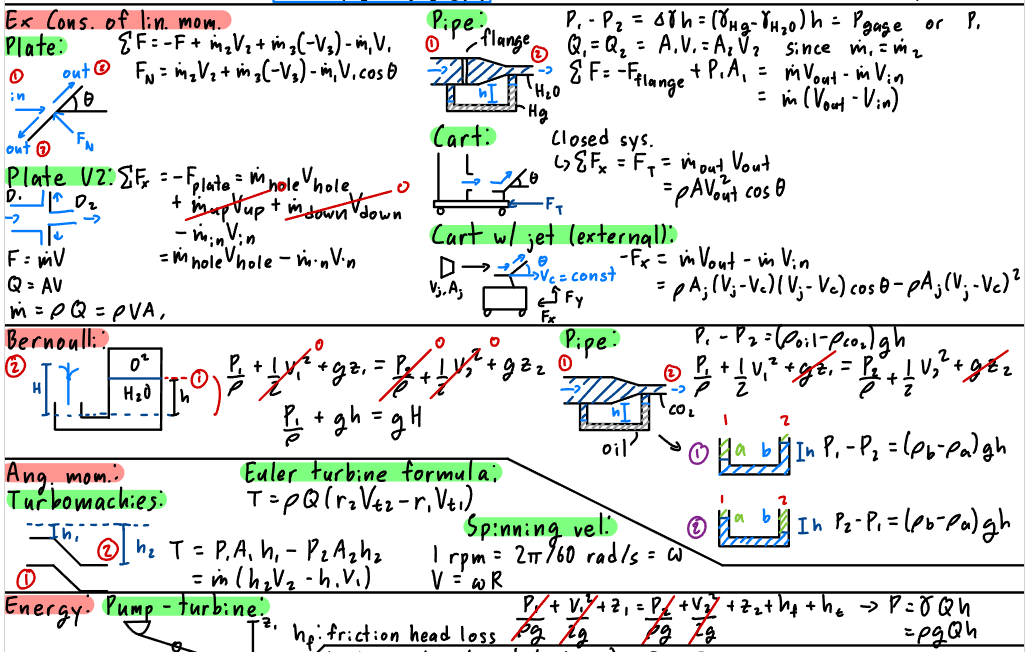 Ex Cons. of lin. mom.
Plate:
ΣF = -F + ṁ₂V₂ + ṁ₃(-V₃) - ṁ₁V₁
F_N = ṁ₂V₂ + ṁ₃(-V₃) - ṁ₁V₁ cosθ
① in
out ②
θ
F_N
out ③
Plate V2:
ΣFₓ = -F_plate = ṁ_hole V_hole
+ ṁ_up V_up + ṁ_down V_down
0 0
- ṁ_in V_in
= ṁ_hole V_hole - ṁ_in V_in
D₁ D₂
F = ṁV
Q = AV
ṁ = ρQ = ρVA,
Pipe:
① flange ②
h
H₂O
Hg
P₁ - P₂ = Δγh = (γ_Hg - γ_H₂O)h = P_gage or P₁
Q₁ = Q₂ = A₁V₁ = A₂V₂ since ṁ₁ = ṁ₂
ΣF = -F_flange + P₁A₁ = ṁV_out - ṁV_in
= ṁ(V_out - V_in)
Cart:
θ
F_T
Closed sys.
↳ ΣFₓ = F_T = ṁ_out V_out
= ρAV²_out cosθ
Cart w/ jet (external):
V_j, A_j
θ
V_c = const
F_y
Fₓ
-Fₓ = ṁV_out - ṁV_in
= ρA_j(V_j - V_c)(V_j - V_c) cosθ - ρA_j(V_j - V_c)²
Bernoulli:
②
H
O²
H₂O
①
h
P₁/ρ + 1/2 V₁² + gz₁ = P₂/ρ + 1/2 V₂² + gz₂
0 0 0
P₁/ρ + gh = gH
Pipe:
① ②
h
CO₂
oil
P₁ - P₂ = (ρ_oil - ρ_CO₂)gh
P₁/ρ + 1/2 V₁² + gz₁ = P₂/ρ + 1/2 V₂² + gz₂
1 2
① a b h P₁ - P₂ = (ρb - ρa)gh
1 2
② a b h P₂ - P₁ = (ρb - ρa)gh
Ang. mom.:
Turbomachies:
h₁
② h₂
①
T = P₁A₁h₁ - P₂A₂h₂
= ṁ(h₂V₂ - h₁V₁)
Euler turbine formula:
T = ρQ(r₂V_t2 - r₁V_t1)
Spinning vel:
1 rpm = 2π/60 rad/s = ω
V = ωR
Energy:
Pump-turbine:
z₁
h_f: friction head loss
P₁/ρg + V₁²/2g + z₁ = P₂/ρg + V₂²/2g + z₂ + h_f + h_t → P = γQh
= ρgQh